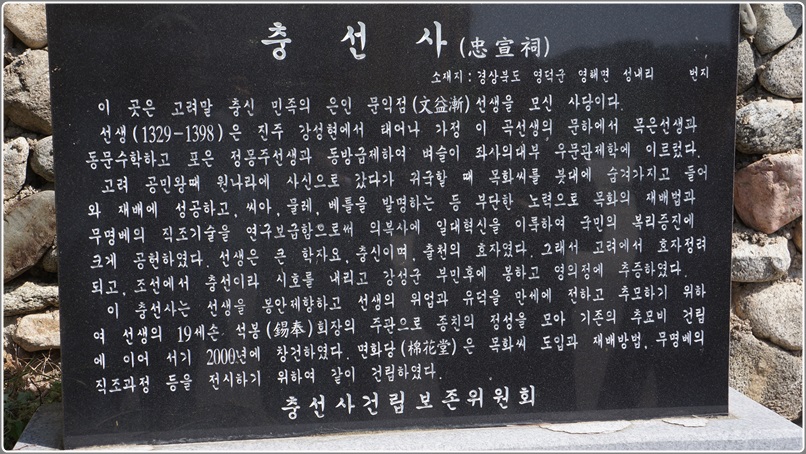 충선사 (忠宣祠)
소재지 : 경상북도 영덕군 영해면 성내리 번지
이 곳은 고려말 충신 민족의 은인 문익점(文益漸)선생을 모신 사당이다.
선생(1329-1398)은 진주 강성현에서 태어나 가정 이 곡선생의 문하에서 목은선생과
동문수학하고 포은 정몽주선생과 동방급제하여 벼슬이 좌사의대부 우문관제학에 이르렀다.
고려 공민왕때 원나라에 사신으로 갔다가 귀국할 때 목화씨를 붓대에 숨겨가지고 들어
와 재배에 성공하고, 씨아, 물레, 베틀을 발명하는 등 부단한 노력으로 목화의 재배법과
무명베의 직조기술을 연구보급함으로써 의복사에 일대혁신을 이룩하여 국민의 복리증진에
크게 공헌하였다. 선생은 큰 학자요, 충신이며, 출천의 효자였다. 그래서 고려에서 효자정려
되고, 조선에서 충선이라 시호를 내리고 강성군 부민후에 봉하고 영의정에 추증하였다.
이 충선사는 선생을 봉안제향하고 선생의 위업과 유덕을 만세에 전하고 추모하기 위하
여 선생의 19세손, 석봉(錫奉)회장의 주관으로 종친의 정성을 모아 기존의 추모비 건립
에 이어 서기 2000년에 창건하였다. 면화당(棉花堂)은 목화씨 도입과 재배방법, 무명베의
직조과정 등을 전시하기 위하여 같이 건립하였다.
충선사건립보존위원회